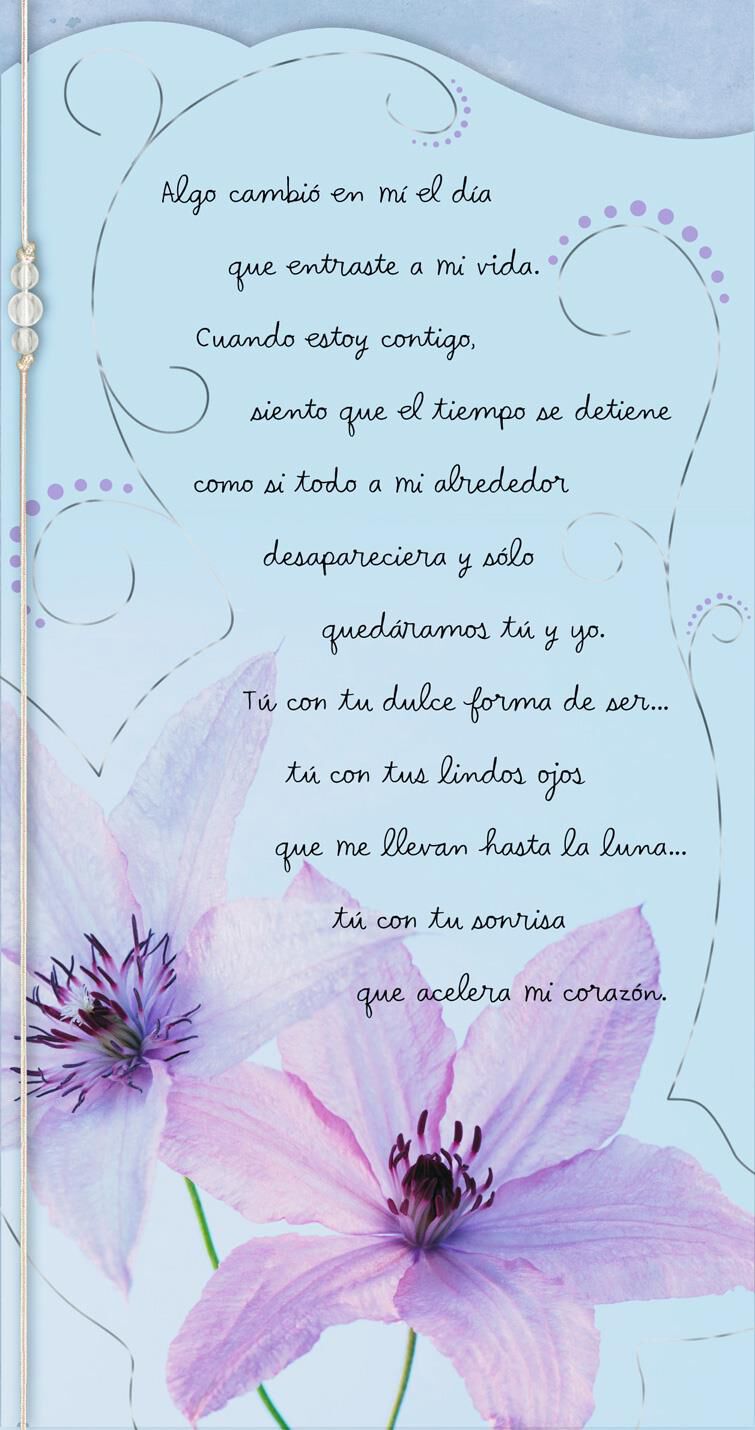 Algo cambió en mí el día
que entraste a mi vida.
Cuando estoy contigo,
siento que el tiempo se detiene
como si todo a mi alrededor
desapareciera y sólo
quedáramos tú y yo.
Tú con tu dulce forma de ser...
tú con tus lindos ojos
que me llevan hasta la luna...
tú con tu sonrisa
que acelera mi corazón.